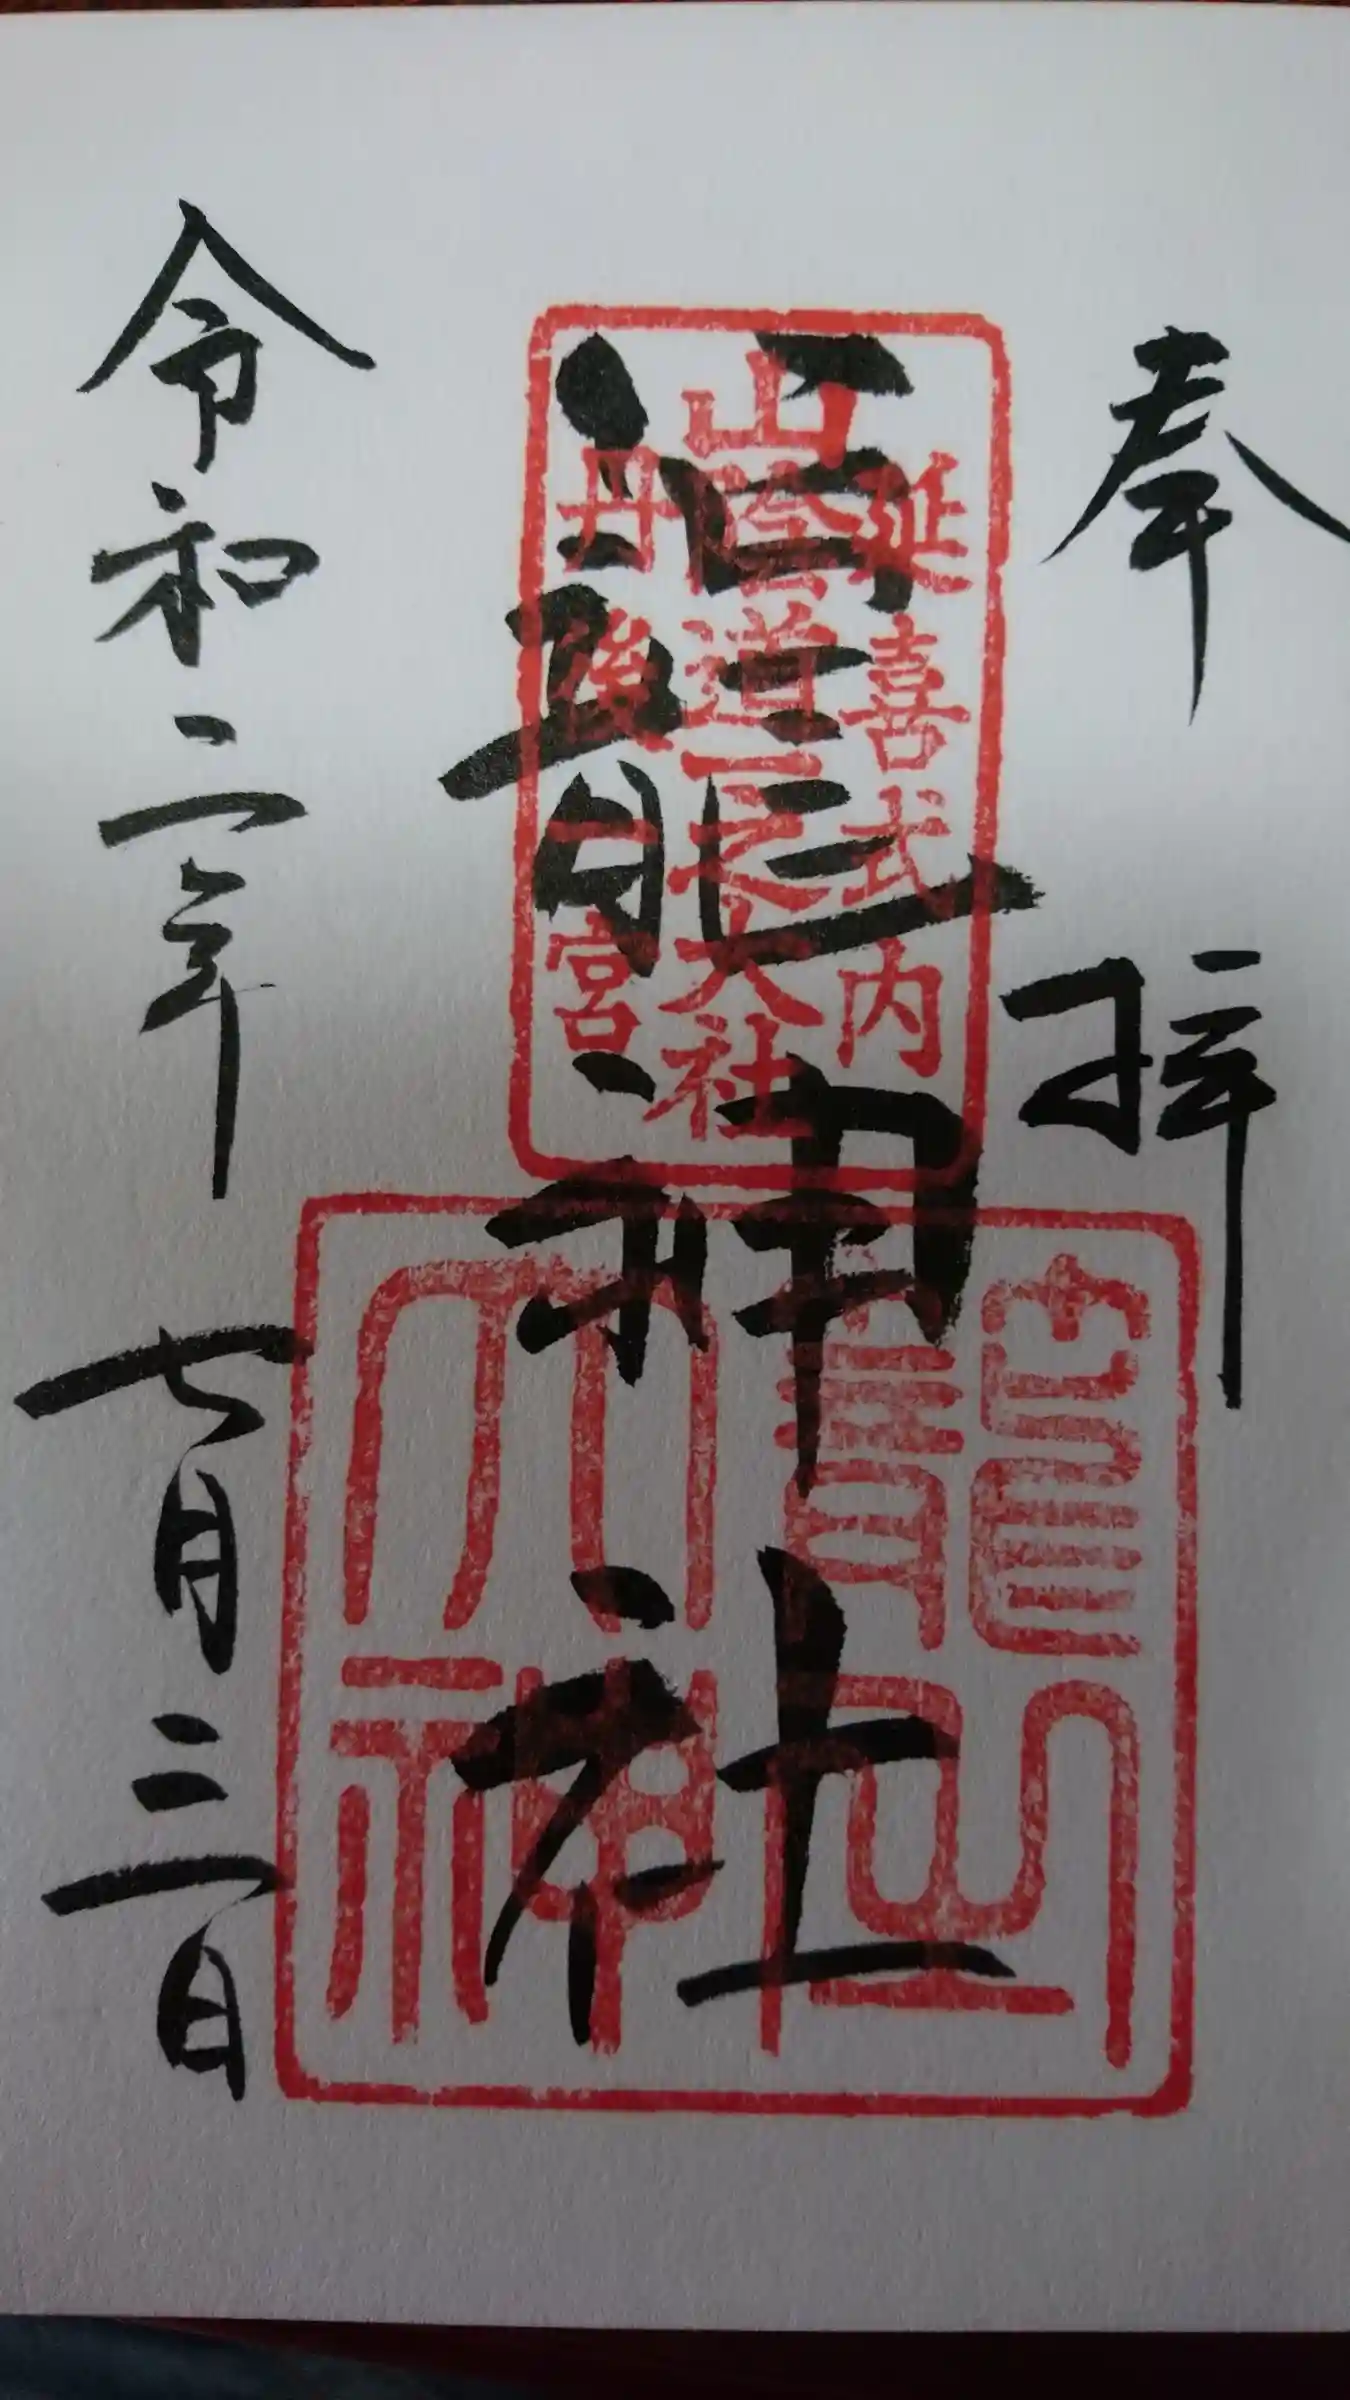 奉拝
延喜式内
山陰道一之大社
丹後一宮
籠神社
令和二年七月三日